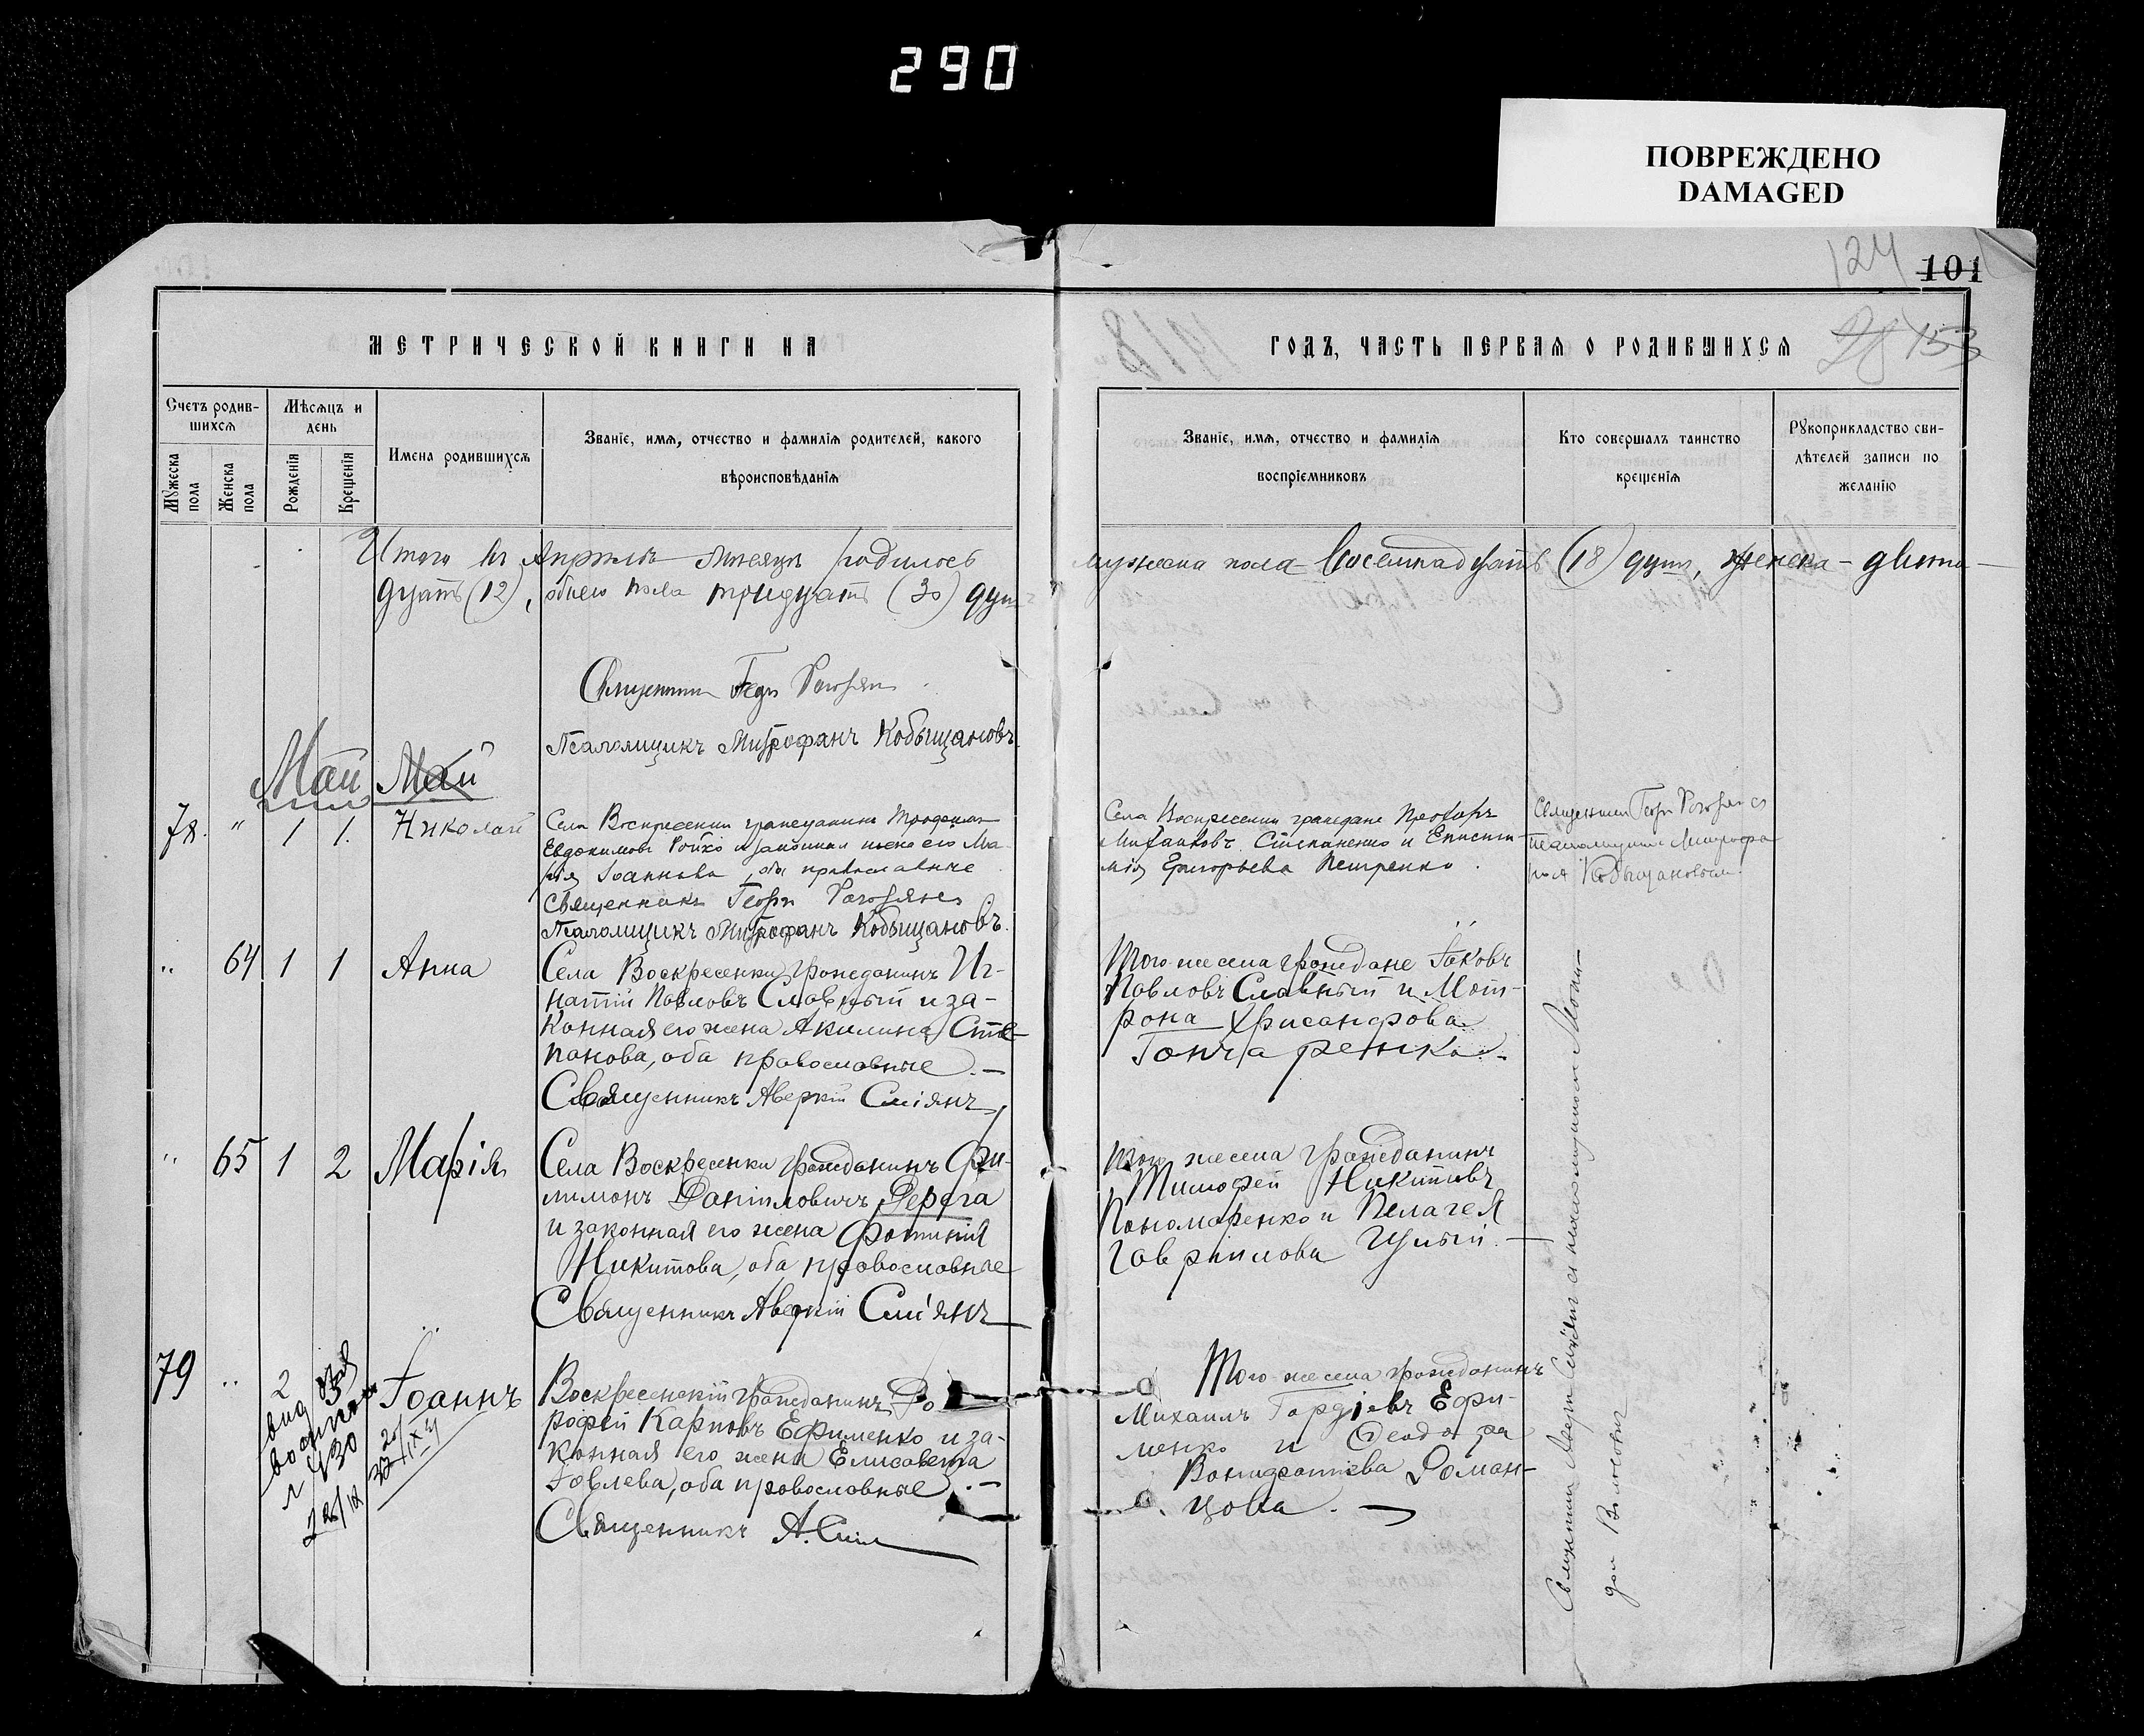 290
ПОВРЕЖДЕНО
DAMAGED
124
101
МЕТРИЧЕСКОЙ КНИГИ НА
1918
ГОДЪ, ЧАСТЬ ПЕРВАЯ О РОДИВШИХСЯ
28 153
Счетъ родив-
шихся
Мужеска
пола
Женска
пола
Мѣсяцъ и
день
Рожденія
Крещенія
Имена родившихся
Званіе, имя, отчество и фамилія родителей, какого
вѣроисповѣданія
Званіе, имя, отчество и фамилія
воспріемниковъ
Кто совершалъ таинство
крещенія
Рукоприкладство сви-
дѣтелей записи по
желанію
Итого въ Апрѣлѣ мѣсяцѣ родилось мужеска пола восемнадцать (18) душъ, женска – двѣна-
дцать (12), обоего пола тридцать (30) душъ
Священникъ
Псаломщикъ Митрофанъ Кобыщановъ
Май Май
78. " 1 1. Николай
Села Воскресенки гражданинъ Трофимъ
Евдокимовъ Бойко и законная жена его Ма-
рія Іоаннова, оба православные
Священникъ Георгій
Псаломщикъ Митрофанъ Кобыщановъ.
Села Воскресенки граждане
Михаиловъ Степаненко и
Григорьева Петренко.
Священникъ Георгій
псаломщикомъ Митрофа-
номъ Кобыщановымъ
" 64 1 1 Анна
Села Воскресенки гражданинъ Иг-
натій Павловъ Славный и за-
конная его жена Акилина Сте-
панова, оба православные.—
Священникъ Аверкій Сміянъ
Того же села граждане Іаковъ
Павловъ Славный и Мат-
рона Хрисанфова
Гончаренкова.
" 65 1 2 Марія
Села Воскресенки гражданинъ Фи-
лимонъ Даніиловичъ Дерега
и законная его жена Фотинія
Никитова, оба православные
Священникъ Аверкій Сміянъ
Того же села гражданинъ
Тимофей Никитовъ
Пономаренко и Пелагея
Гавріилова Цулый.—
79 " 2 3 Іоаннъ
Воскресенскій гражданинъ До
рофей Карповъ Ефименко и за-
конная его жена Елисавета
Іовлева, оба православные.—
Священникъ А. Сміян
Того же села гражданинъ
Михаилъ Гордіевъ Ефи-
менко и Феодора
Роман-
цова.—
Священникъ Аверкій Сміянъ съ псаломщикомъ